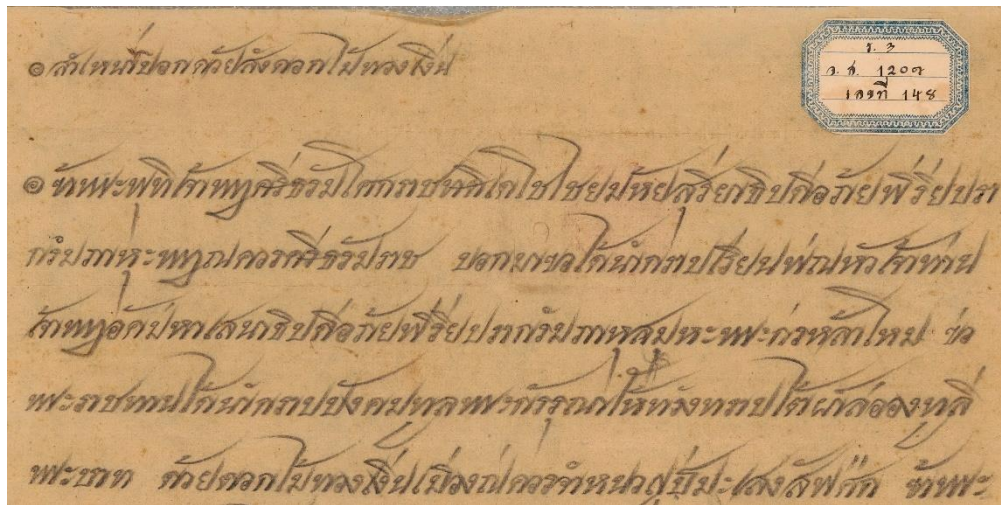 ๏ สำเหนาบอกด้วยสังดอกไม้ทองเงีน
ร. 3
จ. ศ. 120๗
เลขที่ 148
๏ ข้าพะพุทิเจ้าพญาศรีธรัมโศกราชชาติเดโชไชยมไหยสุริยาธิบดีอะภัยพีรียปรา
กรมภาหุะพญาณครศรีธรัมราช บอกมาขอได้นำกราบเรียนพ่ณหัวเจ้าท่าน
เจ้าพญาอัคมหาเสนาธิบดีอภัยพีรียปรากรมภาหุสมุหะพระกะลาโหม ขอ
พระราชทานได้นำกราบบังคมทูลพระกรรุณาให้ทราบใต้ฝ่าลอองทูลี
พระบาท ด้วยดอกไม้ทองเงีนเมืองณครจำหนวนปีมะเสงสัพศก ข้าพระ